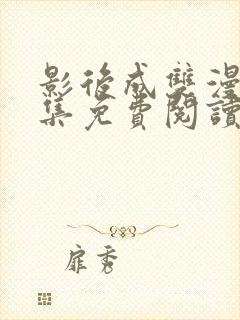 影後成雙漫
集免費閱讀
扉秀